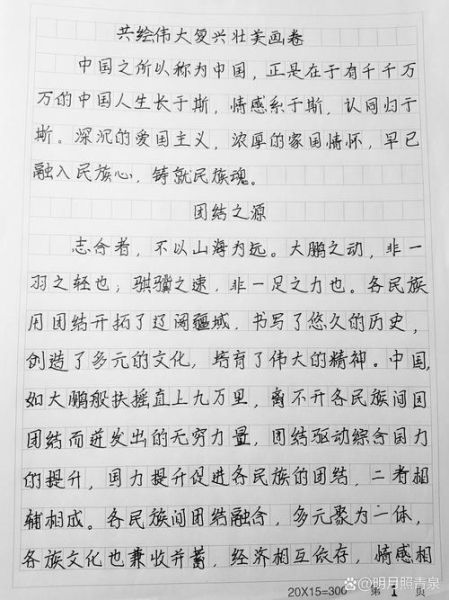 共绘伟大复兴壮美画卷
中国之所以称为中国，正是在于有千千万
万的中国人生长于斯，情感系于斯，认同归于
斯。深沉的爱国主义，浓厚的家国情怀，早已
融入民族心，铸就民族魂。
团结之源
志合者，不以山海为远。大鹏之动，非一
羽之轻也；骐骥之速，非一足之力也。各民族
用团结开拓了辽阔疆域，书写了悠久的历史，
创造了多元的文化，培育了伟大的精神。中国，
如大鹏般扶摇直上九万里，离不开各民族间因
团结而迸发出的无穷力量，团结驱动综合国力
的提升，国力提升促进各民族的团结，二者相
辅相成。各民族间团结融合，多元聚为一体，
各族文化也兼收并蓄，经济相互依存，情感相
20X15=300 第 1 页
@明月照青泉